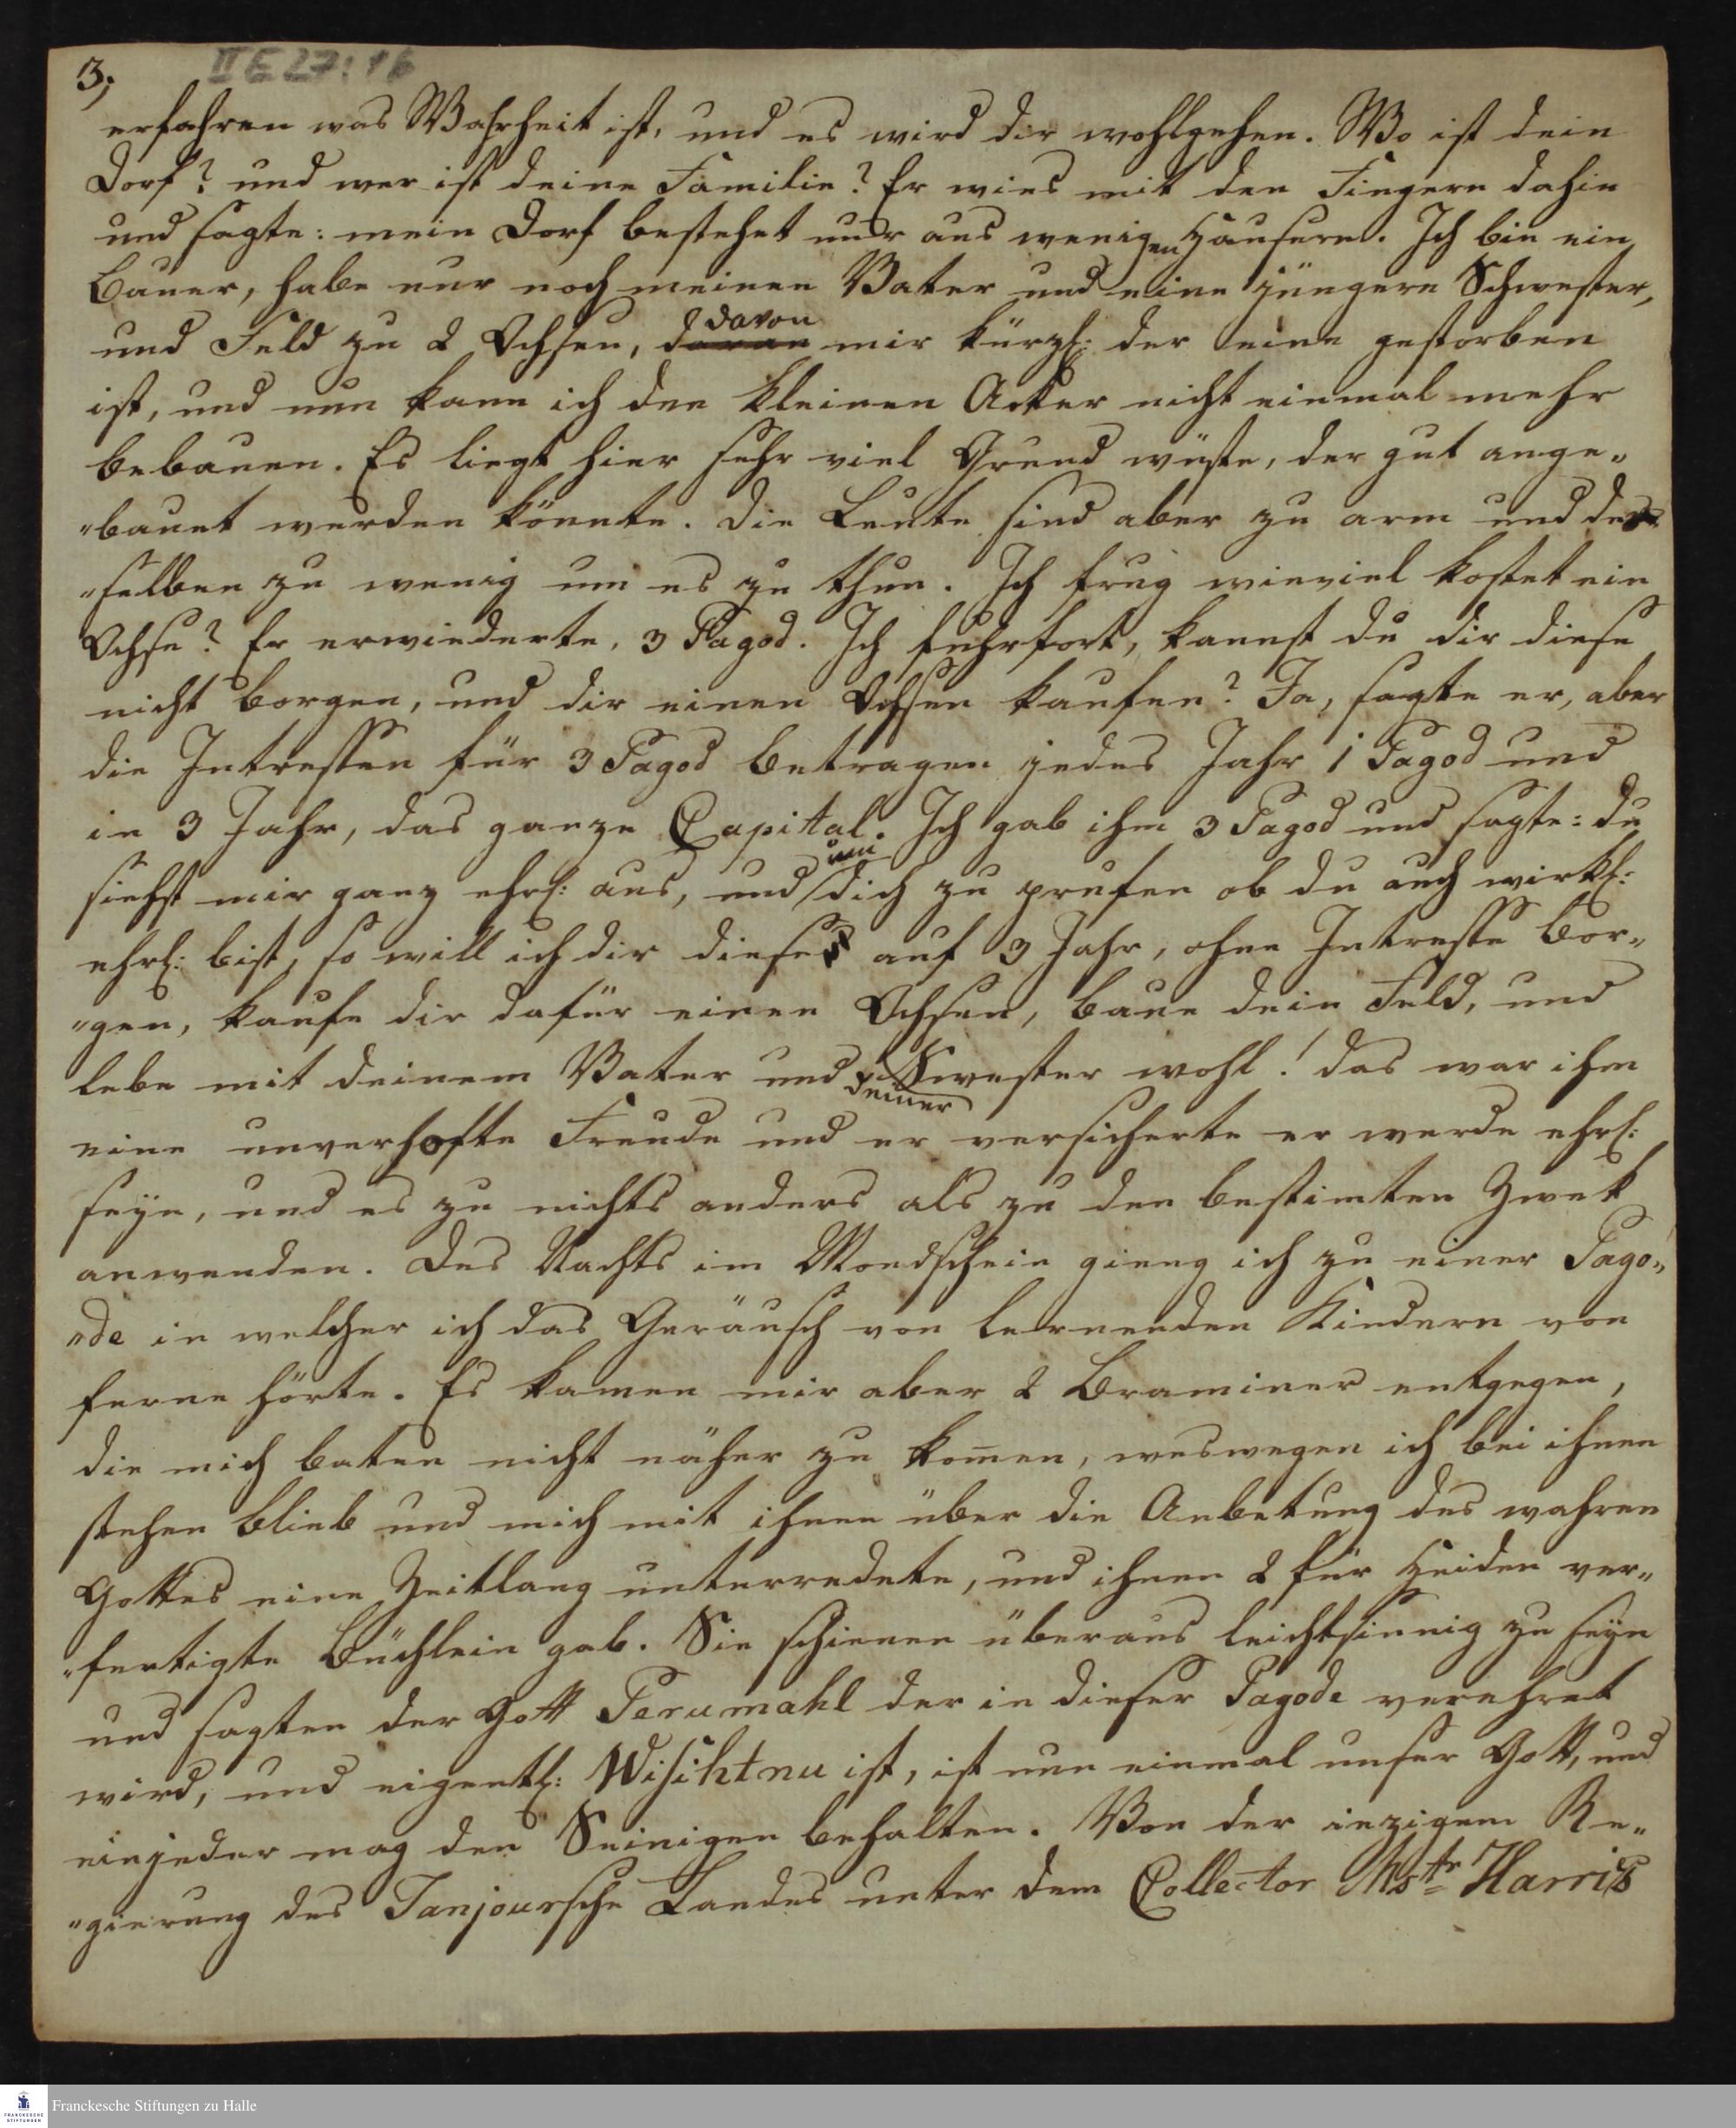 3,
II E 27:16
erfahren was Wahrheit ist, und es wird dir wohlgehen. Wo ist dein
Dorf? und wer ist deine Familie? Er wies mit den Fingern dahin
und sagte: mein Dorf bestehet nur aus wenigen Häusern. Ich bin ein
Bauer, habe nur noch meinen Vater und eine jüngere Schwester,
und Feld zu 2 Ochsen, daran davon mir kürzl: der eine gestorben
ist, und nun kann ich den kleinen Acker nicht einmal mehr
bebauen. Es liegt hier sehr viel Grund wüste, der gut ange„
„bauet werden könnte. Die Leute sind aber zu arm und der
„selben zu wenig um es zu thun. Ich frug wieviel kostet ein
Ochse? Er erwiederte, 3 Pagod. Ich fuhrfort, kannst du dir diese
nicht borgen, und dir einen Ochsen kaufen? Ja, sagte er, aber
die Intressen für 3 Pagod betragen jedes Jahr 1 Pagod und
in 3 Jahr, das ganze Capital. Ich gab ihm 3 Pagod und sagte: du
siehst mir ganz ehrl: aus, und um dich zu prufen ob du auch wirkl:
ehrl: bist, so will ich dir diese auf 3 Jahr, ohne Intresse bor„
„gen, kaufe dir dafür einen Ochsen, baue dein Feld, und
lebe mit deinem Vater und deiner Swester wohl! das war ihm
eine unverhofte Freude und er versicherte er werde ehrl:
seyn, und es zu nichts anders als zu den bestimten Zwek
anwenden. Des Nachts im Mondschein gieng ich zu einer Pago„
„de in welcher ich das Geräusch von lernenden Kindern von
ferne hörte. Es kamen mir aber 2 Braminer entgegen,
die mich baten nicht näher zu kom̅en, weswegen ich bei ihnen
stehen blieb und mich mit ihnen über die Anbetung des wahren
Gottes eine Zeitlang unterredete, und ihnen 2 für Heiden ver„
„fertigte Büchlein gab. Sie schienen überaus leichtsinnig zu seyn
und sagten der Gott Perumahl der in dieser Pagode verehret
wird, und eigentl: Wisihtnu ist, ist nun einmal unser Gott, und
einjeder mag den Seinigen behalten. Von der iezigem Re„
„gierung des Tanjoursche Landes unter dem Collector Mstr Harris
Franckesche Stiftungen zu Halle
FRANCKESCHE
STIFTUNGEN